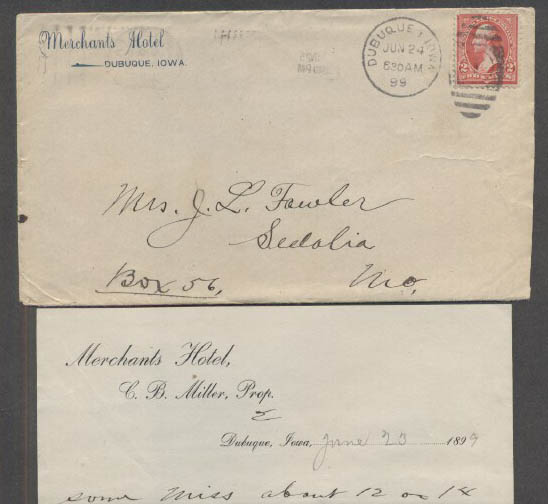 Merchants Hotel
DUBUQUE, IOWA.
DUBUQUE, IOWA
JUN 24
630AM
99
2 2
Mrs. J. L. Fowler
Sedalia
Box 56, Mo.
Merchants Hotel,
C. B. Miller, Prop.
Dubuque, Iowa, June 23 1899
some Miss about 12 or 14